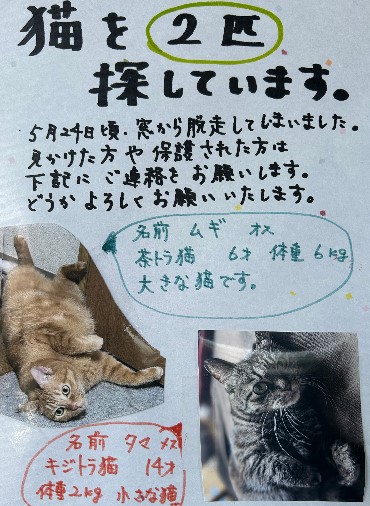 猫を2匹
探しています。
5月24日頃、窓から脱走してしまいました。
見かけた方や保護された方は
下記にご連絡をお願いします。
どうかよろしくお願いいたします。
名前 ムギ オス
茶トラ猫 6才 体重6kg
大きな猫です。
名前 タマ メス
キジトラ猫 14才
体重2kg 小さな猫